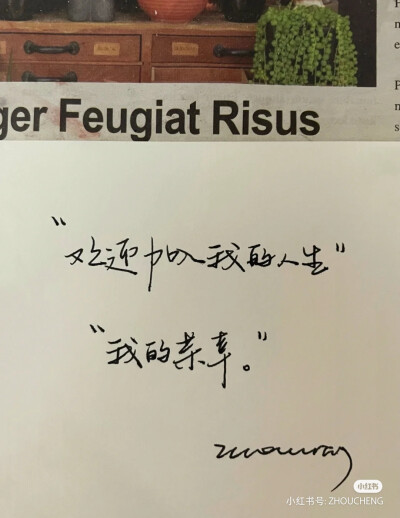 ger Feugiat Risus
"欢迎加入我的人生"
"我的荣幸。"
小红书
小红书号: ZHOUCHENG